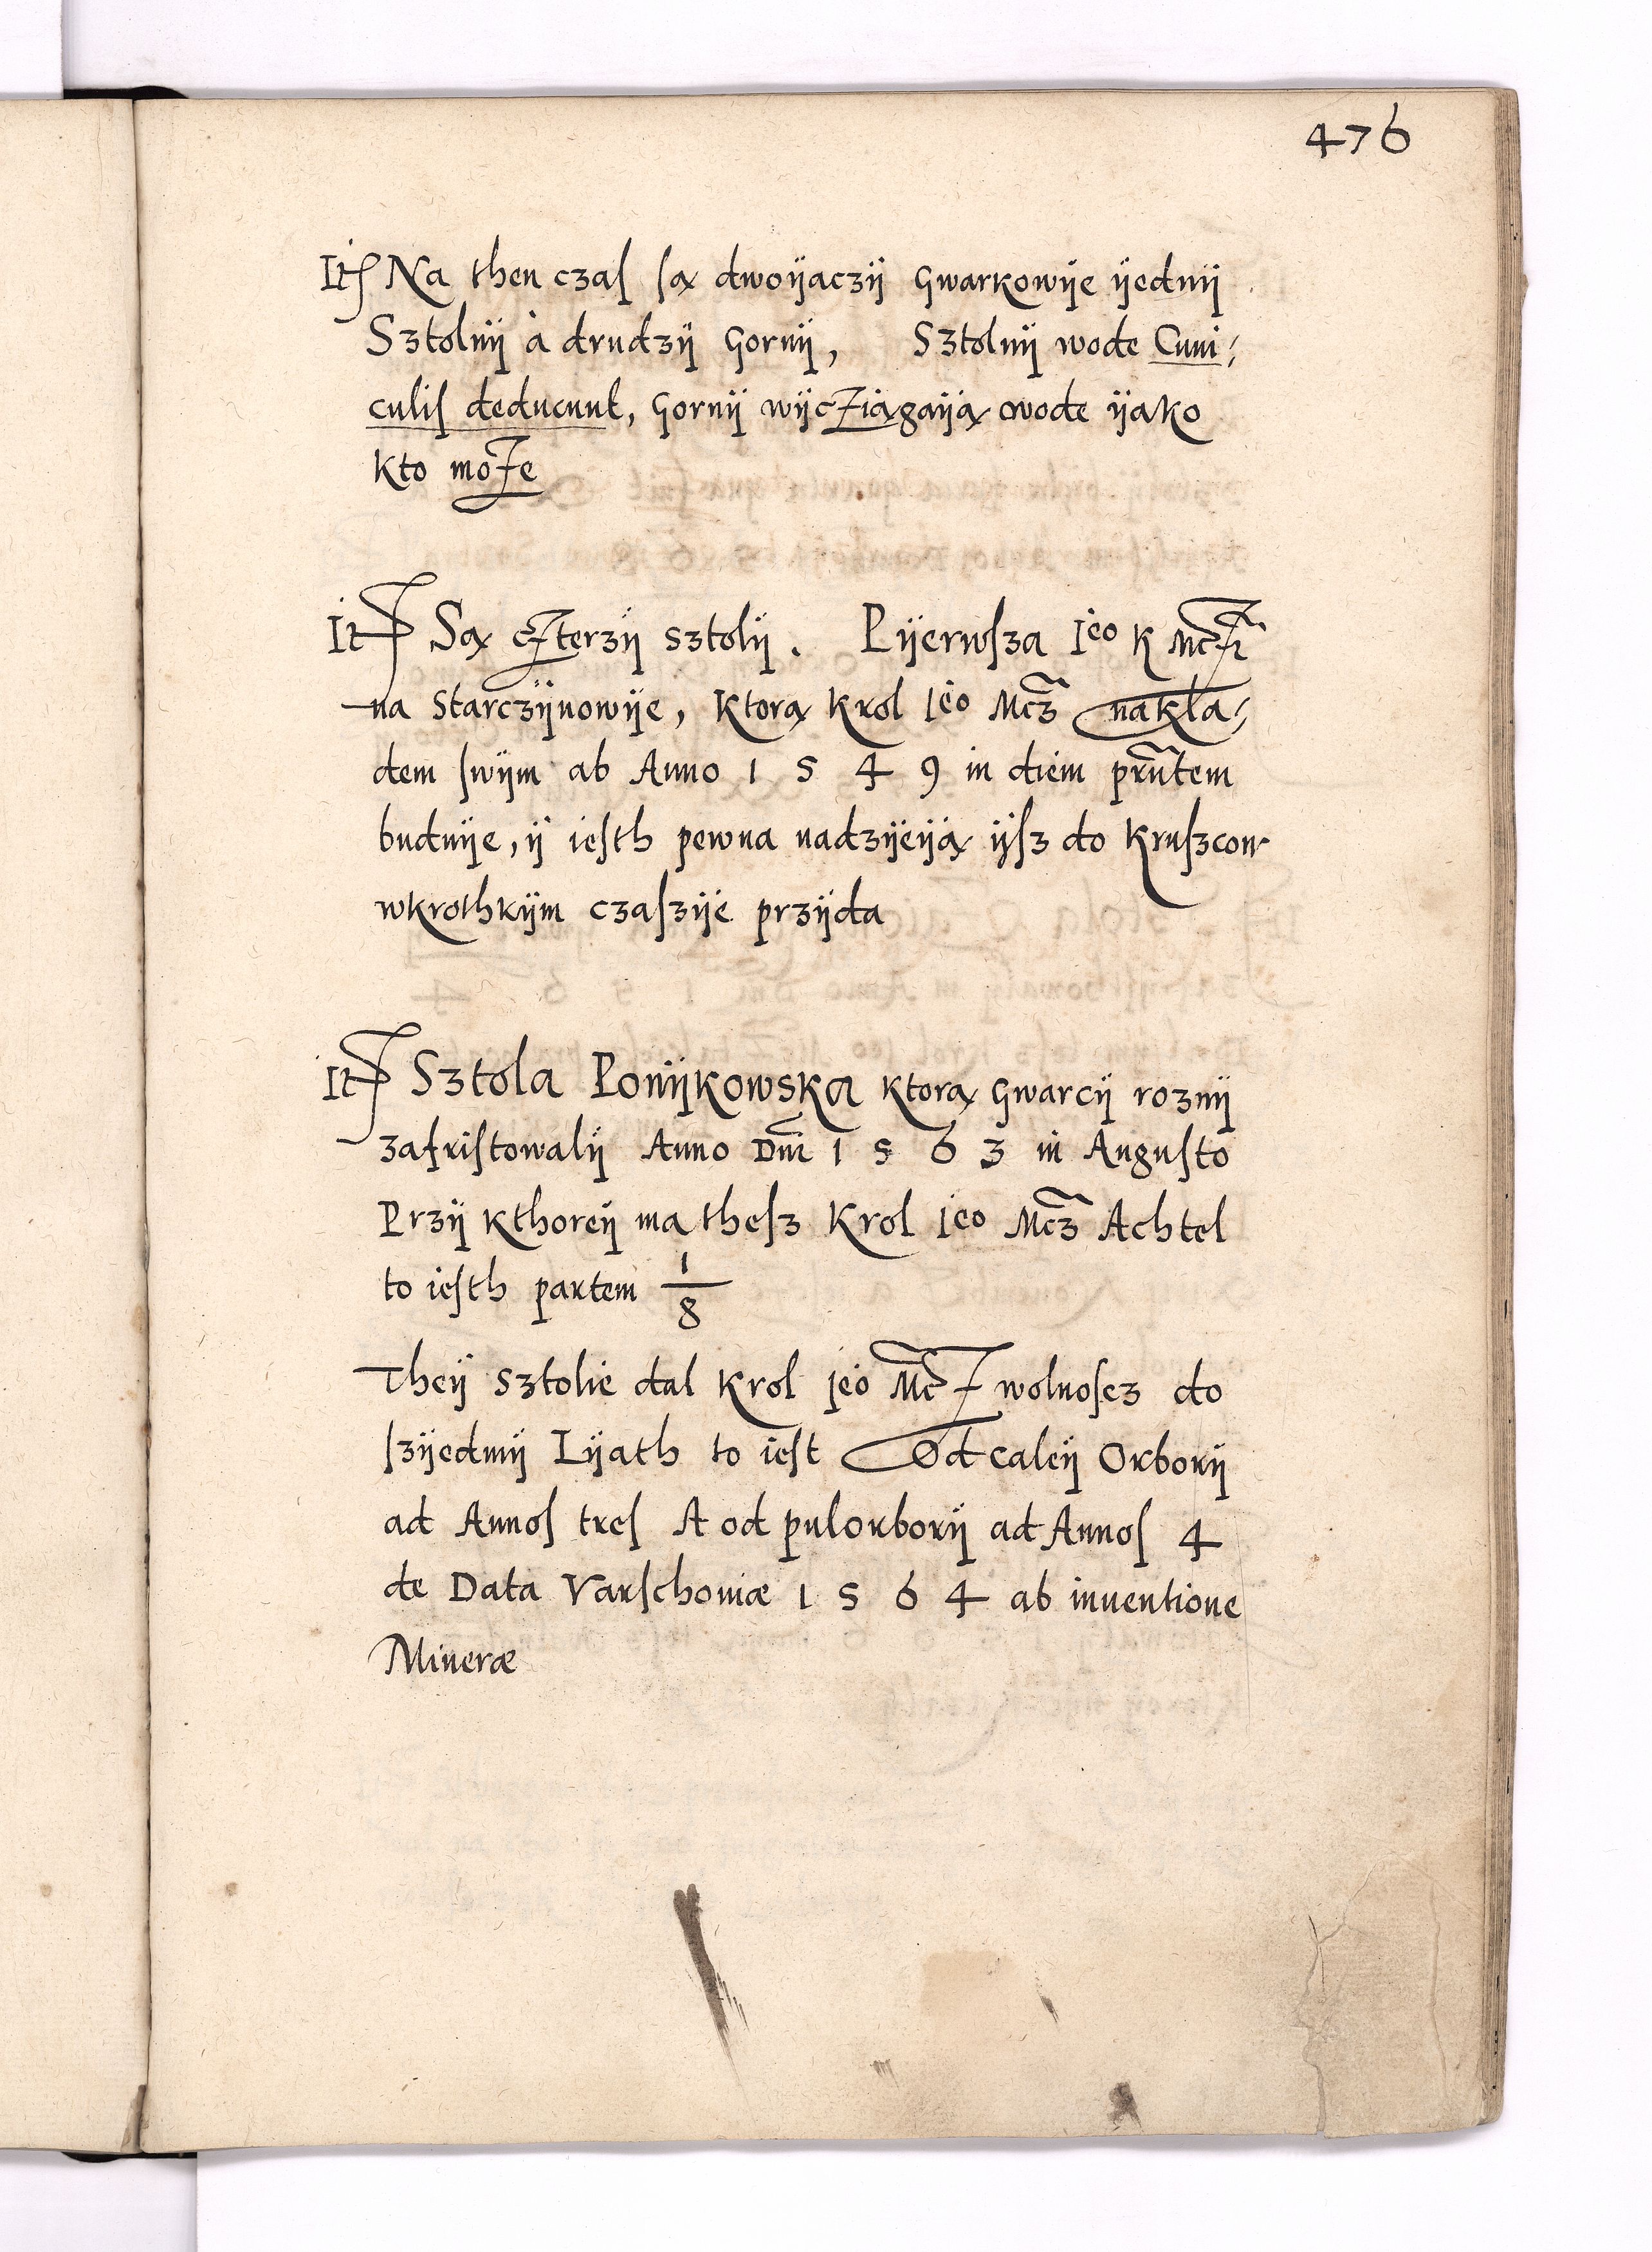 476
It Na then czaſ ſą dwoÿaczÿ Gwarkowÿe ÿednÿ
Sztolnÿ à drudzÿ Gornÿ, Sztolnÿ wode Cuni⸗
culiſ deducunt, Gornÿ wÿcziągaÿą wode ÿako
kto może
It Są czterzÿ sztolÿ. Pÿerwſza Ieo K Mczi
na Starczÿnowÿe, Ktorą Krol Ieo Mcz nakla⸗
dem ſwÿm ab Anno 1 5 4 9 in diem prntem
buduÿe, ÿ ieſth pewna nadzÿeÿą ÿſz do Kruſzcow
wkrothkÿm czaſzÿe przÿda
It Sztola Ponÿkowska Ktorą Gwarcÿ roznÿ
zafriſtowalÿ Anno Dni 1 5 6 3 in Auguſto
Przÿ Kthoreÿ ma theſz Krol Ieo Mcz Achtel
to ieſth partem 1/8
Theÿ sztolie dal Krol Ieo Mcz wolnoſcz do
ſzÿedmÿ Lÿath to ieſt Od caleÿ Orborÿ
ad Annoſ treſ A od pulorborÿ ad Annoſ 4
de Data Varſchoviæ 1 5 6 4 ab inuentione
Mineræ